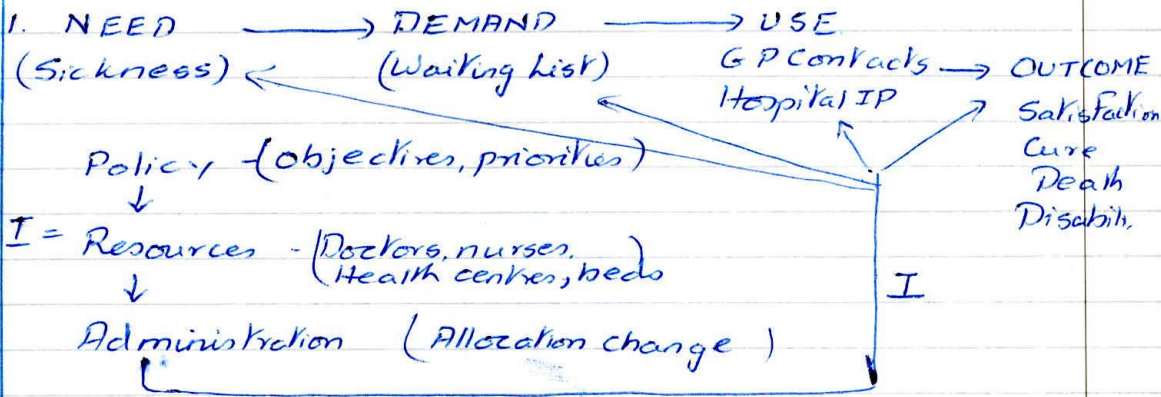 1. NEED → DEMAND → USE
(Sickness) (Waiting List) GP Contacts → OUTCOME
Hospital IP Satisfaction
Cure
Policy - (objectives, priorities) Death
↓ Disabili.
I = Resources - (Doctors, nurses,
Health centres, beds)
↓ I
Administration (Allocation change)